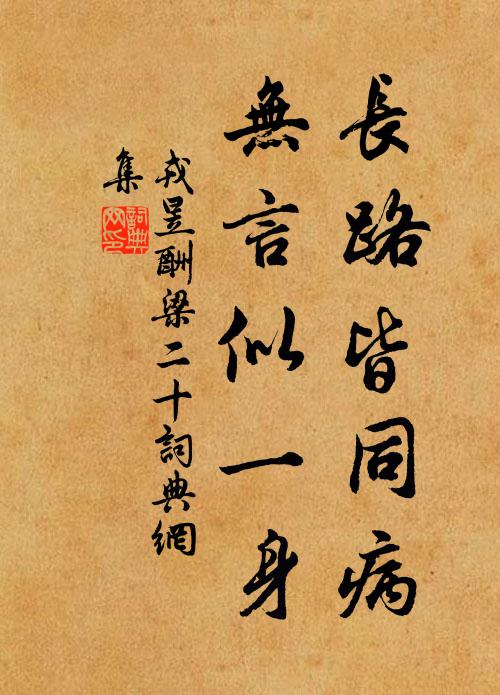 長路皆同病
無言似一身
戎昱酬梁二十詞典網
集
詞典
网印